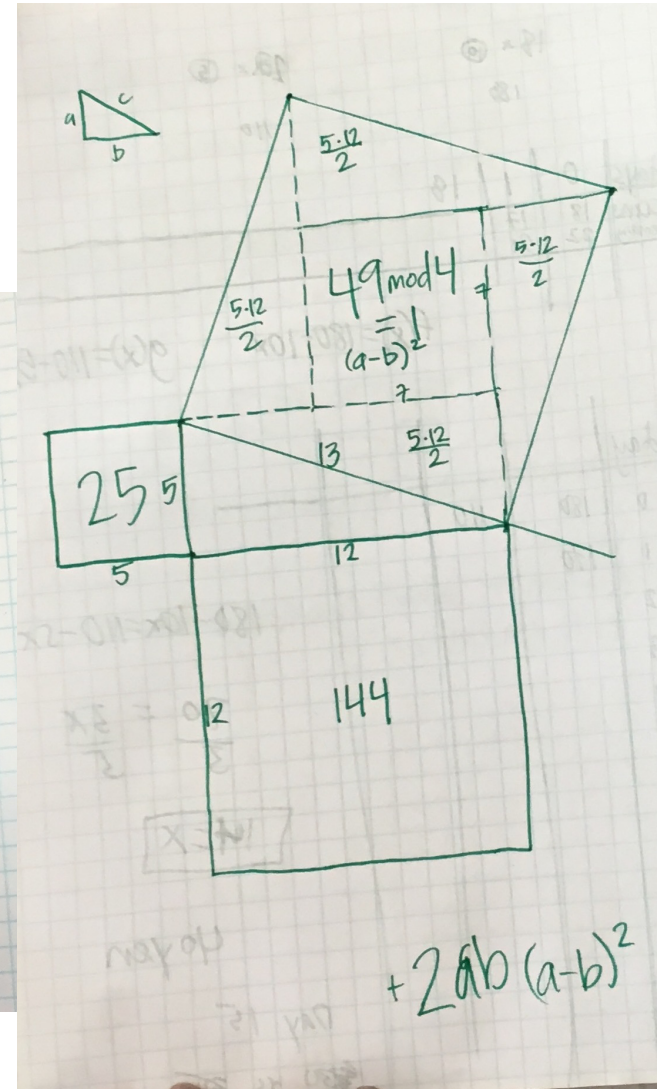 a
c
b
5·12
2
5·12
2
49 mod 4
= 1
(a-b)²
7
7
5·12
2
5·12
2
13
25
5
5
12
12
144
+2ab (a-b)²